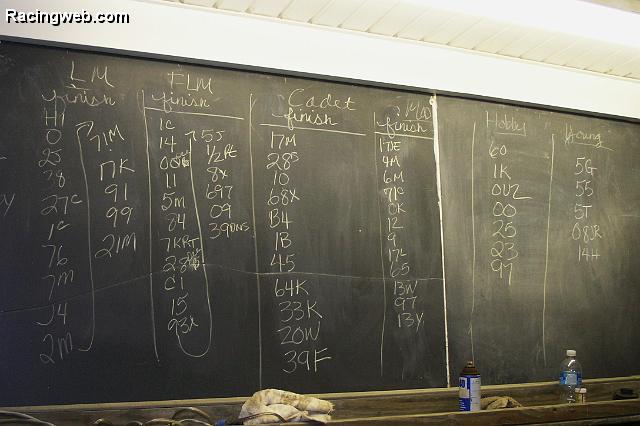 Racingweb.com
LM
finish
H1
0
25
38
27c
1c
76
7m
J4
2m
91M
17K
91
99
21M
FLM
finish
1c
14
11
5m
84
7KRT
28
C1
15
93x
55
1/2 PE
8x
697
09
39 DNS
Cadet
finish
17M
28s
10
68x
B4
1B
45
64K
33K
20W
39F
Mod
finish
17DE
4A
6M
71c
0K
12
9
17L
65
13W
97
13Y
Hobby
60
1K
0UZ
00
25
23
97
Young
5G
55
5T
08JR
14H